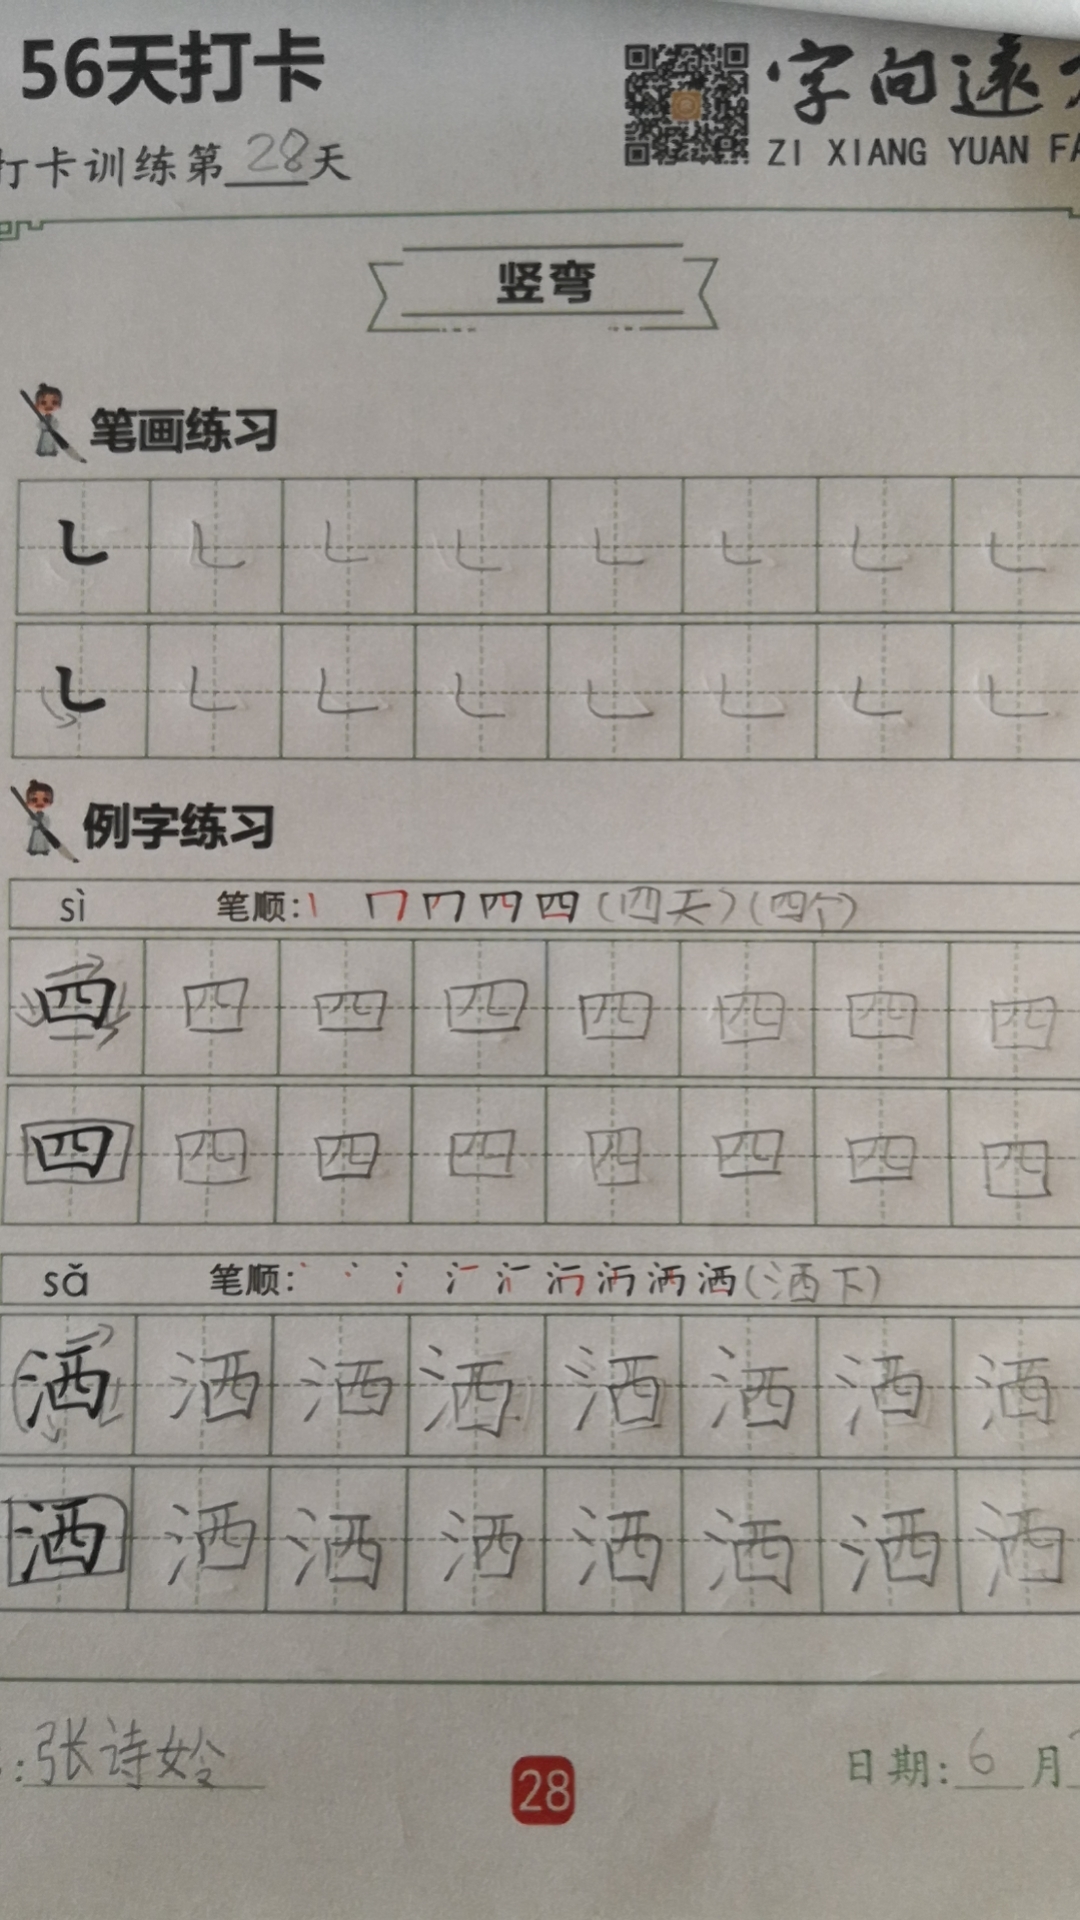 56天打卡
字向遠
ZI XIANG YUAN FA
打卡训练第28天
竖弯
笔画练习
㇄ ㇄ ㇄ ㇄ ㇄ ㇄ ㇄ ㇄
㇄ ㇄ ㇄ ㇄ ㇄ ㇄ ㇄ ㇄
例字练习
sì 笔顺: 四(四天)(四个)
四 四 四 四 四 四 四 四
四 四 四 四 四 四 四 四
sǎ 笔顺: 洒(洒下)
洒 洒 洒 洒 洒 洒 洒 洒
洒 洒 洒 洒 洒 洒 洒 洒
:张诗姈
28
日期:6月